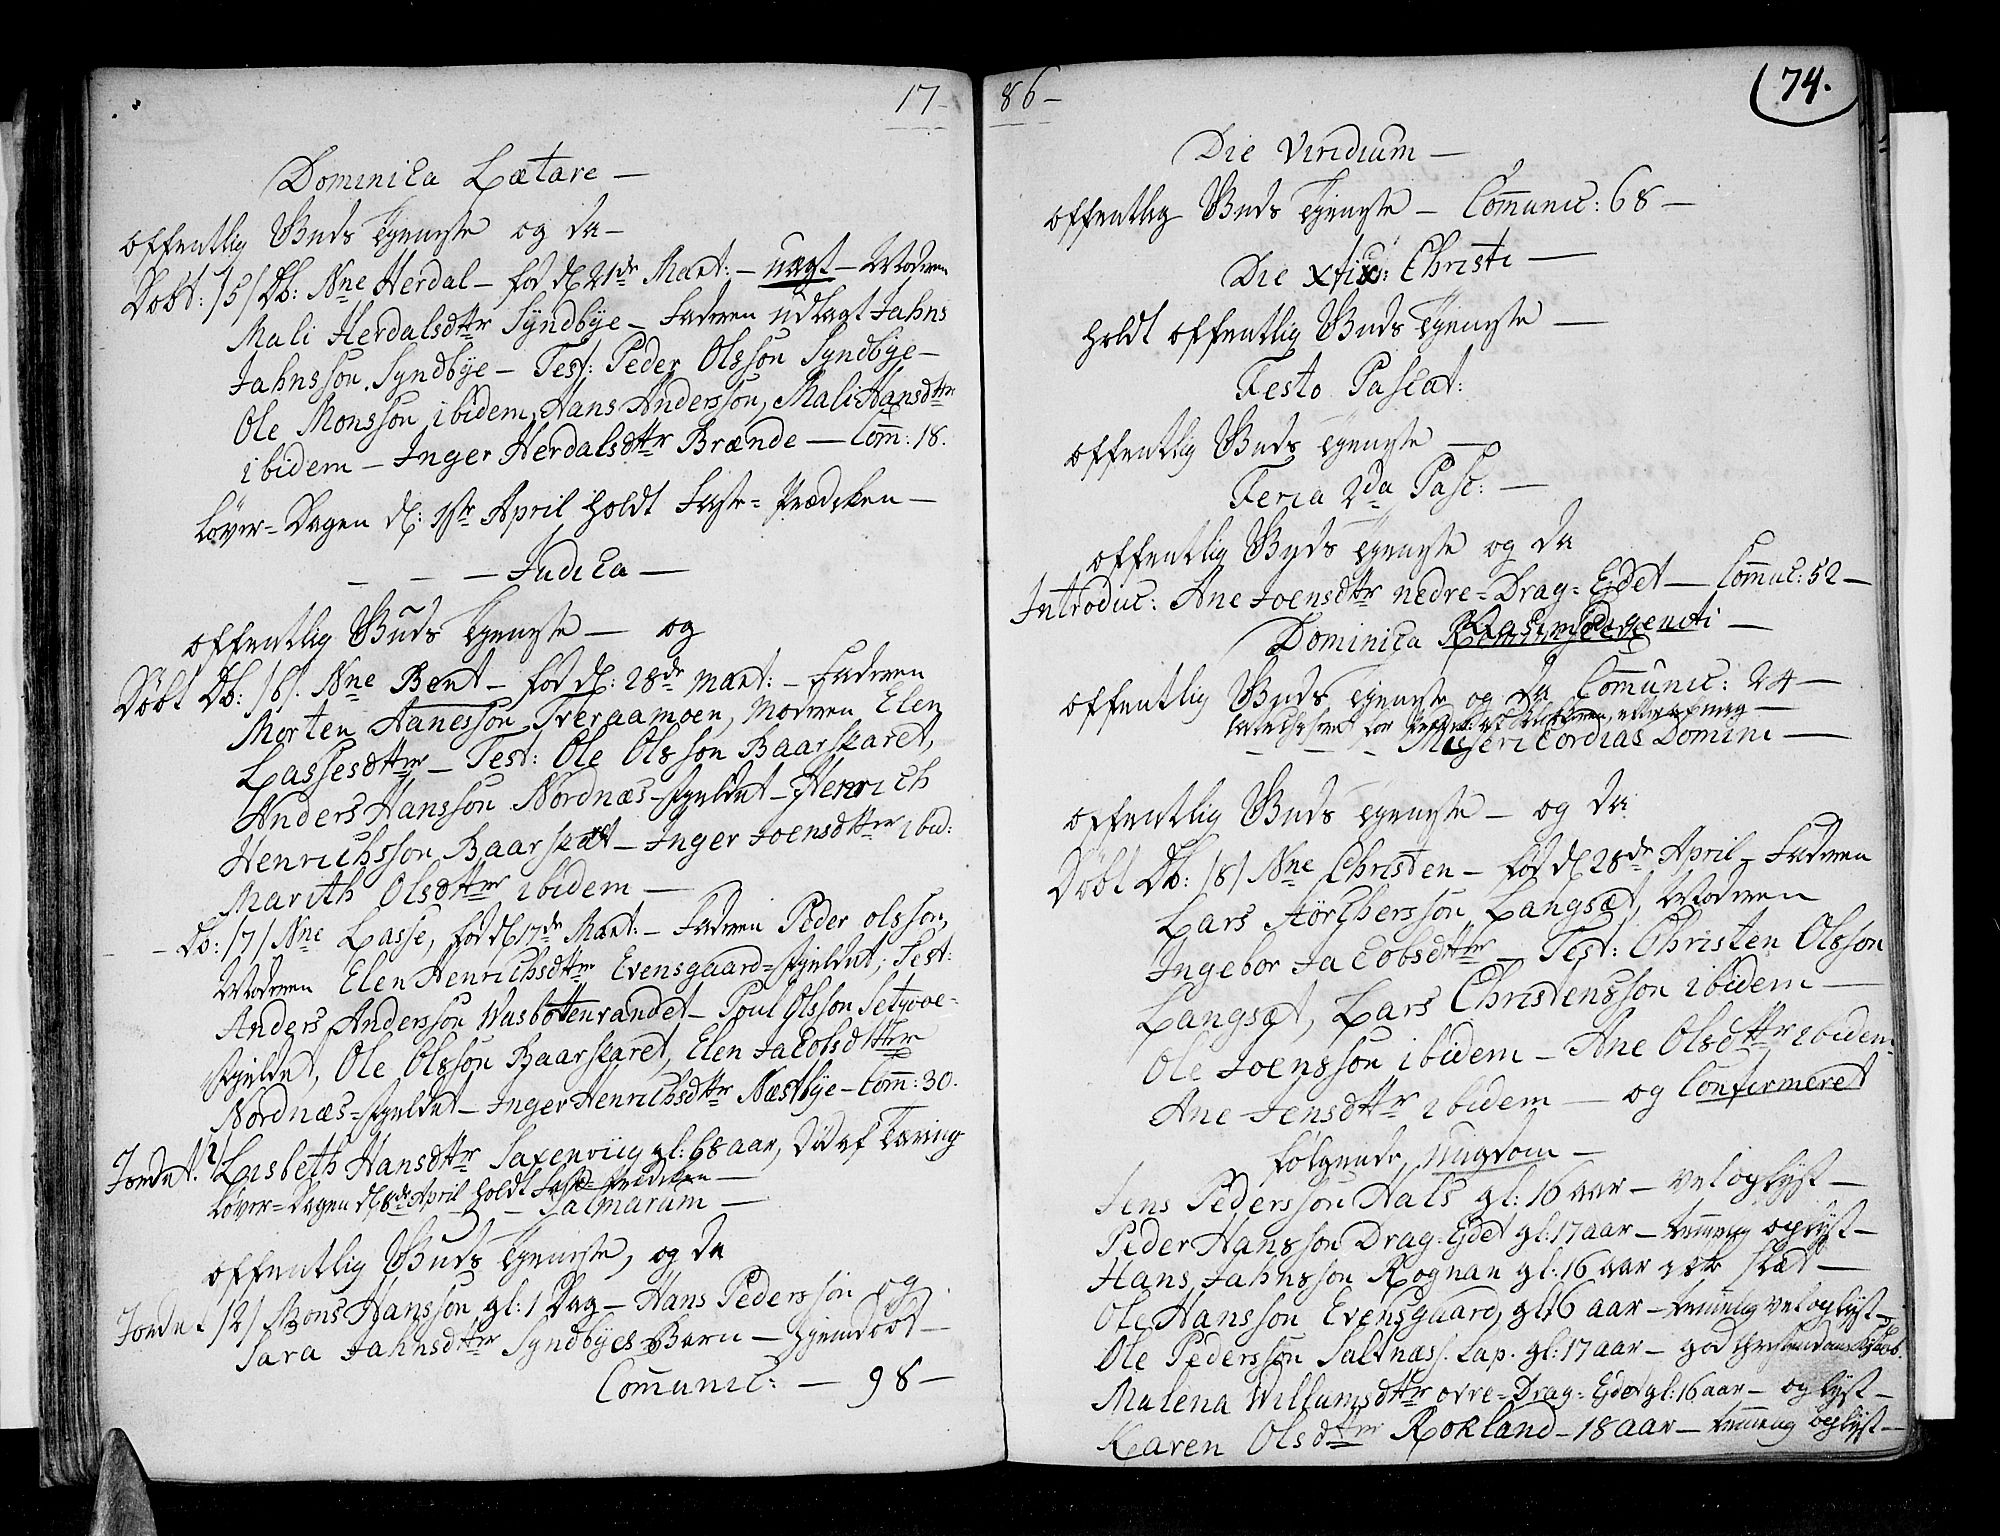 17-
Dominica Lætare —
offentlig Guds Tjeneste og da -
Døbt: /5/ Db: Nne Herdal - fød d. 21de Mart: - uægt - Moderen
Mali Herdalsdttr Syndbye - Faderen udlagt Jahns
Jahnsson Syndbye - Test: Peder Olsson Syndbye -
Ole Monsson ibidem, Hans Andersson, Mali Hansdttr
ibidem - Inger Herdalsdttr Brænde - Com: 18.
Løver-Dagen d: 1ste April holdt Faste-Prædiken -
- - - Judica -
offentlig Guds Tjeneste - og
Døbt Db: /6/. Nne Bent - fød d: 28de Mart: - Faderen
Morten Hanesson Tveraamoen, Moderen Elen
Lassesdttr - Test: Ole Olsson Baarskaret,
Anders Hansson Nordnæs-Fjeldet - Henrich
Henrichsson Baarskaret - Inger Joensdttr ibid:
Marith Olsdttr ibidem -
- - Db: /7/ Nne Lasse, fød d 17de Mart: - Faderen Peder Olsson,
Moderen Elen Henrichsdttr Evensgaard-Fjeldet; Test:
Anders Andersson Wasbottenvandet - Poul Olsson Setzove-
Fjeldet, Ole Olsson Baarskaret, Elen Jacobsdtter
Nordnæs-Fjeldet - Inger Henrichsdttr Næstbye - Com: 30.
Jordet. 1/ Lisbeth Hansdttr Saxenviig gl: 68 aar, død af Tæring
Løver-Dagen d. 8de April holdt Faste-Prediken -
- Palmarum -
offentlig Guds Tjeneste, og da
Jordet /2/ Mons Hansson gl: 1 Dag - Hans Pedersson og
Sara Jahnsdttr Syndbyes Barn - hjemdøbt -
Comunic: — 98 -
86-
74.
Die Viridium -
offentlig Guds Tjeneste - Comunic: 68 -
Die xfix: Christi -
holdt offentlig Guds Tjeneste -
Festo Pascat:
offentlig Guds Tjeneste -
Feria 2da Pasc: -
offentlig Guds Tjeneste og da
Introduc: Ane Joensdttr nedre-Drag-Eidet - Comuc: 52 -
Dominica Quasimodogeniti -
offentlig Guds Tjeneste og da Comunic: 24 -
- - - Misericordias Domini -
offentlig Guds Tjeneste - og da
Døbt Db: /8/ Nne Christen - fød d 28de April - Faderen
Lars Jörchersson Langsæt, Moderen
Ingebor Jacobsdttr - Test: Christen Olsson
Langsæt, Lars Christensson ibidem -
Ole Joensson ibidem - Ane Olsdttr ibidem -
Ane Jensdttr ibidem - og Confirmeret
følgende Ungdom -
Jens Pedersson Hals gl: 16 aar - vel oplyst -
Peder Hansson Drag-Ejdet gl: 17 aar - temmelig oplyst -
Hans Jahnsson Rognan gl: 16 aar slæt -
Ole Hansson Evensgaard, gl: 16 aar - temmelig vel oplyst -
Ole Pedersson Saltnæs. Lap. gl: 17 aar - god Christendoms Kundskab.
Malena Willumsdttr øvre-Drag-Ejdet gl: 16 aar - oplyst -
Karen Olsdttr Rokland - 18 aar - temmelig oplyst -